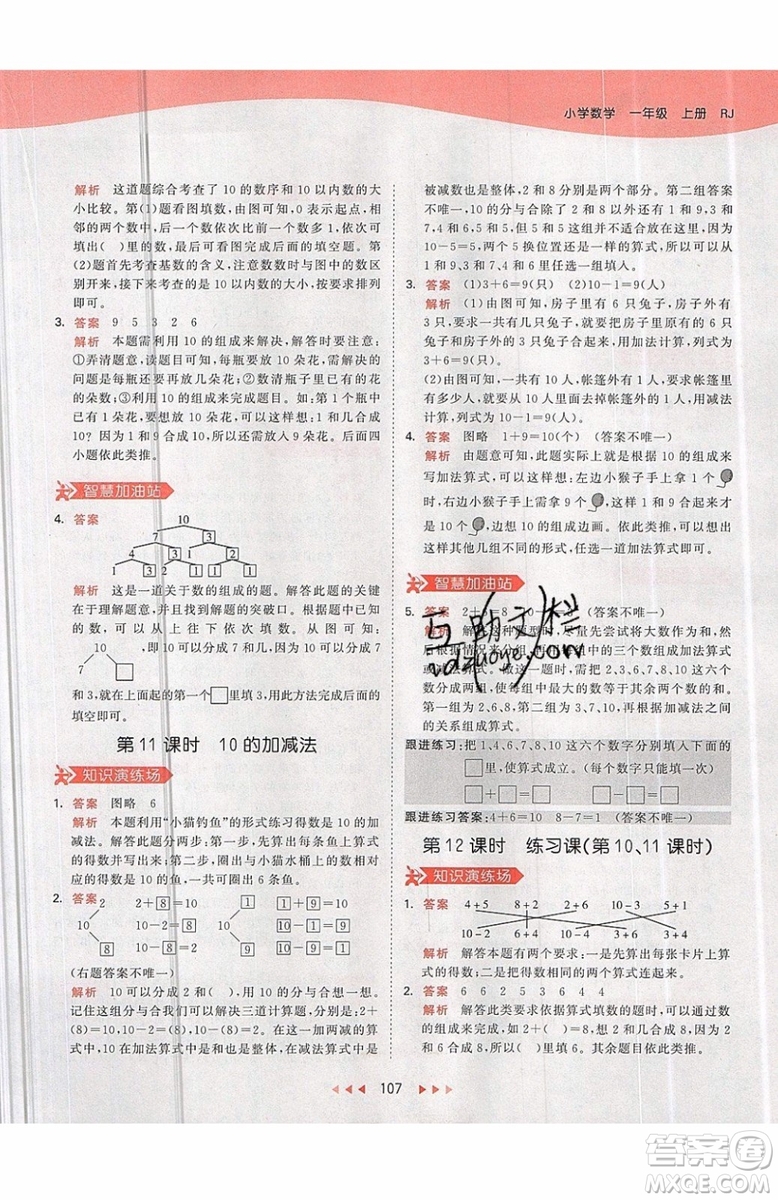 小学数学 一年级 上册 RJ
解析 这道题综合考查了 10 的数序和 10 以内数的大
小比较。第(1)题看图填数,由图可知,0 表示起点,相
邻的两个数中,后一个数依次比前一个数大 1,依次可
填出( )里的数,可以看图完成后面的填空题。第
(2)题首先考查基数的含义,注意数数时与图中的数区
别开来,再比较 10 以内数的大小,然后按要求排列
即可。
3. 答案 9 5 3 2 6
解析 本题需利用 10 的组成来解决,解答时要注意:
①弄清题意,读题目可知,每瓶要放 10 朵花,解决的问
题是每瓶中还要放几朵花;②数清题中每瓶已有的花
朵数;③利用 10 的组成来完成题目。如:第 1 个瓶中
已有 1 朵花,再放几朵就是 10 朵,这样想:1 和几合成
10? 因为 1 和 9 合成 10,所以再放 9 朵花。后面四
小题依此类推。
智慧加油站
4. 答案
10
7 3
5 2 1
1 4 1 1
解析 这是一道关于数的组成的题。解答此题的关键
在于读懂题图的意思,并根据题图找到问题的突破口。
可以从上往下依次填数。从图可知:
10
7 □
,即 10 可以分成 7 和几,因为 10 可以分成 7
和 3,就在上面起的第一个□里填 3,如此完成后面的
填空即可。
第 11 课时 10 的加减法
知识演练场
1. 答案 图略 6
解析 本题利用“小猫钓鱼”的形式练习得数是 10 的加
减法。解答此题分两步:第一步,先算出每条鱼上算式
的得数并写出来;第二步,圈出与小猫水桶上的数相对
应的得数是 10 的鱼,一共可圈出 6 条鱼。
2. 答案
10
2 8
2+8=10
10-2=8
10-8=2
10
1 9
1+9=10
10-1=9
10-9=1
(右题答案不唯一)
解析 10 可以分成 2 和( ),根据 10 的组成想一想。
记住这组分与合我们可以解决三道计算题,分别是:2+
(8)=10,10-2=(8),10-(8)=2,从这组有联系的算
式中,我们发现 10 在加法算式中是和也是整体,在减法
被减数也是整体,2 和 8 分别是两个部分。第二组答案
不唯一,10 的分与合除了 2 和 8 以外还有 1 和 9,3 和
7,4 和 6,5 和 5,但 5 和 5 并不适合放在这里,因为
10-5=5,两个 5 换位置还是一样的算式,所以只能填
和 1 和 9、3 和 7、4 和 6 的任意一组填入。
3. 答案 (1)3+6=9(只) (2)10-1=9(人)
解析 (1)由图可知,房子里有 6 只兔子,房子外有 3
只兔子,要求一共有几只兔子,就要把房子里的 6 只
兔子和房子外的 3 只兔子合起来,用加法计算,列式为
3+6=9(只)。
(2)由图可知一共有 10 人,帐篷外有 1 人,求帐篷里
有多少人,就要从总人数里面去掉帐篷外的人数,用减
法计算,列式为 10-1=9(人)。
4. 答案 图略 1+9=10(个) (答案不唯一)
解析 由题意可知,此题实际上就是根据 10 的组成来
写加法算式,可以这样想:左边小猴子手上拿 1 个
时,右边小猴子手上需要拿 9 个,因为 1 和 9 可
以组成 10 个,边想 10 的组成边画。依此类推,可以想
其他几组不同的形式,任选一组加法算式完成即可。
智慧加油站
5. 答案 2+6=8 10-
解析 解答这种题型时,尽量先尝试将大数与大数、小
分成两组,使每组中最大的数等于较小的两个数之和,
第一组为 2,6,8,第二组为 1,9,10,再根据每组数
的关系组成算式。
跟进练习:把 1,4,6,7,8,10 这六个数字分别填入下面
□里,使算式成立。(每个数字只能填一次)
□+□=□ □-□=□
跟进练习答案:4+6=10 8-7=1 (答案不唯一)
第 12 课时 练习课(第 10、11 课时)
知识演练场
1. 答案 4+5 2+6 10-3 5+1
10-2 10-4 3+6 3+4
解析 解答本题有两个要求:一是先算出每张卡片上算
式的得数;二是把得数相等的两个算式连起来。
2. 答案 6 6 2 5 3 4 4
解析 解答此类要求依据算式填数的题时,可以根据数
的组成来完成,如 2+( )=8,因为 2 和几合成 8,2
和 6 合成 8,所以( )里应填 6。第二小题要看清楚
互助文栏
zdzuoye.com
107
答案圈
MXQE.COM